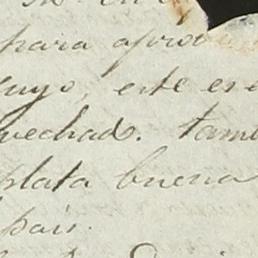 para aprov
suyo, este es e
vechado. tamb
plata buena
pais.